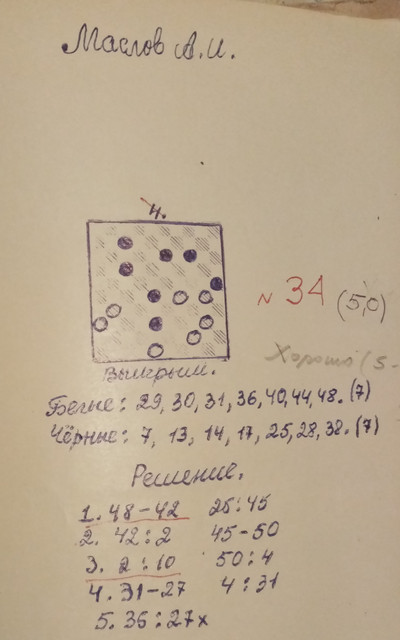 Маслов А.И.
4.
№ 34 (5,0)
Хорошо (5-
Выигрыш.
Белые: 29, 30, 31, 36, 40, 44, 48. (7)
Чёрные: 7, 13, 14, 17, 25, 28, 38. (7)
Решение.
1. 48-42 25:45
2. 42:2 45-50
3. 2:10 50:4
4. 31-27 4:31
5. 36:27x